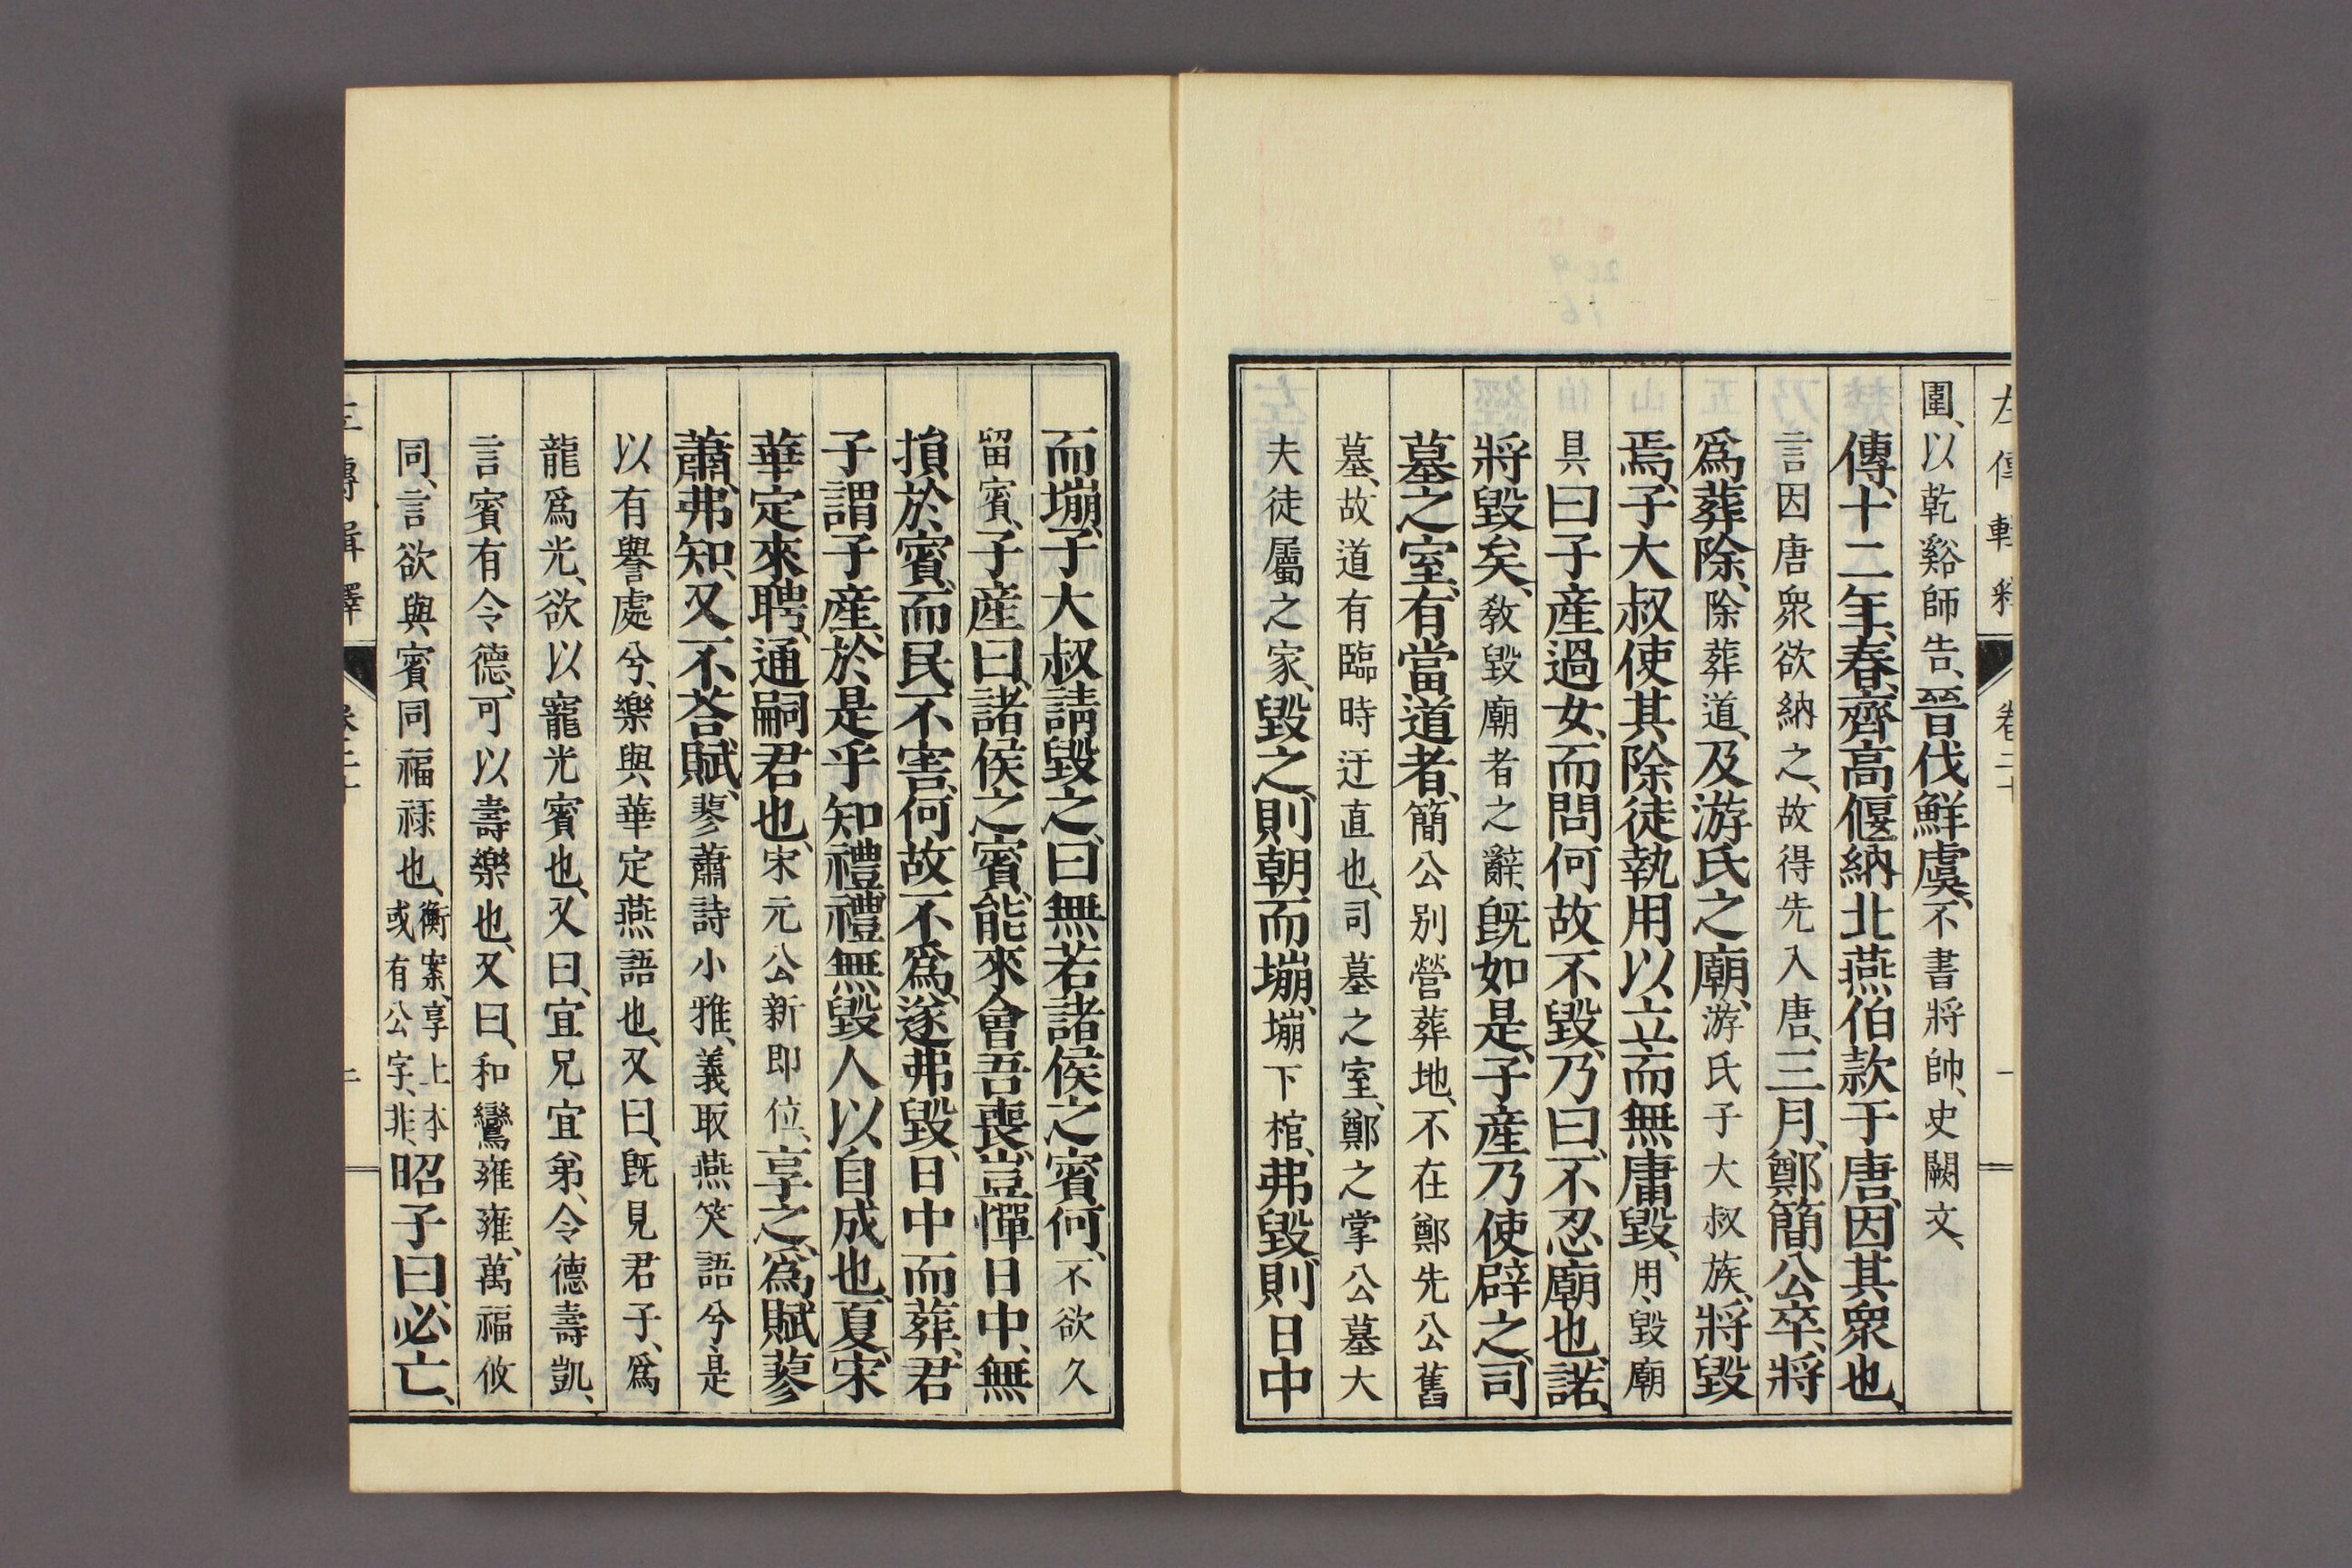 圍、以乾谿師告、晉伐鮮虞、不書將帥、史闕文、
傳、十二年、春、齊高偃納北燕伯款于唐、因其衆也、
言因唐衆欲納之、故得先入唐、三月、鄭簡公卒、將
爲葬除、除葬道、及游氏之廟、游氏子大叔族、將毀
焉、子大叔使其除徒執用以立、而無庸毀、用、毀廟
具曰子產過女、而問何故不毀、乃曰、不忍廟也、諾、
將毀矣、教毀廟者之辭、既如是、子產乃使辟之、司
墓之室、有當道者、簡公别營葬地、不在鄭先公舊
墓、故道有臨時迂直也、司墓之室、鄭之掌公墓大
夫徒屬之家、毀之、則朝而塴、塴下棺、弗毀、則日中
而塴、子大叔請毀之、曰無若諸侯之賓何、不欲久
留賓、子產曰、諸侯之賓、能來會吾喪、豈憚日中、無
損於賓、而民不害、何故不爲、遂弗毀、日中而葬、君
子謂子產、於是乎知禮、禮無毀人以自成也、夏、宋
華定來聘、通嗣君也、宋元公新即位、享之、爲賦蓼
蕭、弗知、又不荅賦、蓼蕭詩小雅、義取燕笑語兮、是
以有譽處兮、樂與華定燕語也、又曰、既見君子、爲
龍爲光、欲以寵光賓也、又曰、宜兄宜弟、令德壽凱、
言賓有令德、可以壽樂也、又曰、和鸞雍雍、萬福攸
同、言欲與賓同福祿也、衡案、享上本或有公字、非、昭子曰、必亡、